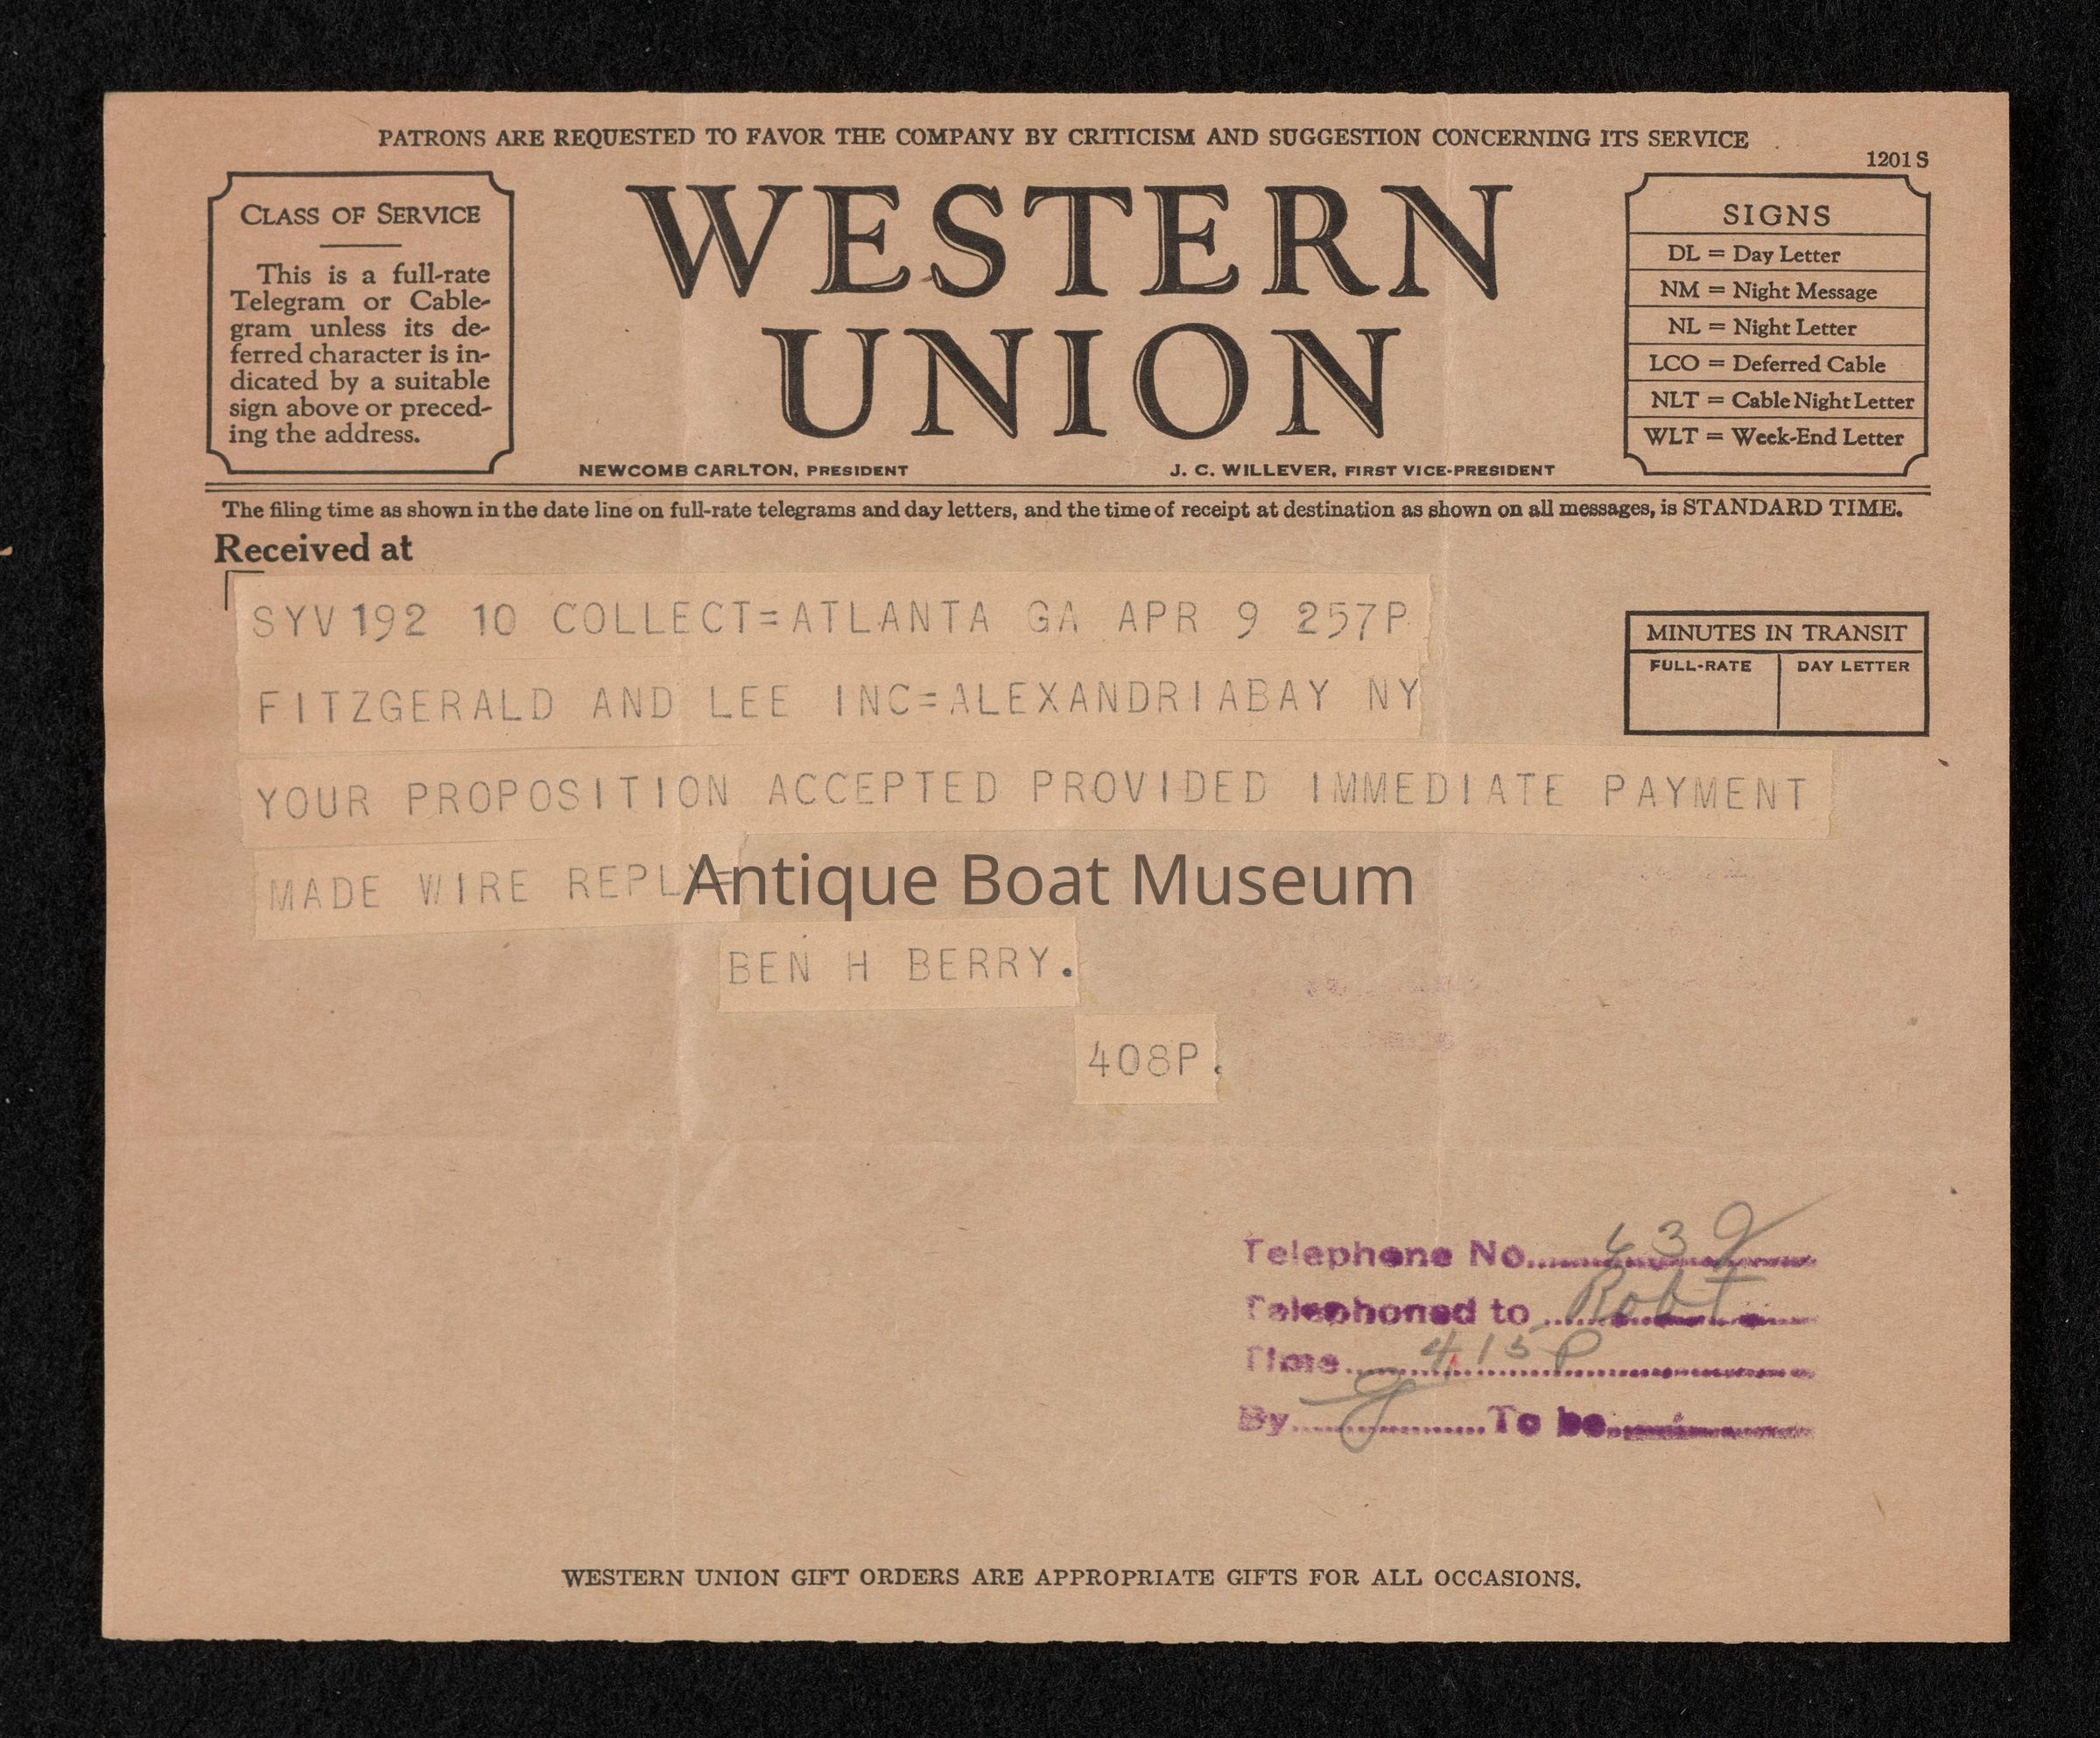 PATRONS ARE REQUESTED TO FAVOR THE COMPANY BY CRITICISM AND SUGGESTION CONCERNING ITS SERVICE
1201 S
CLASS OF SERVICE
This is a full-rate
Telegram or Cable-
gram unless its de-
ferred character is in-
dicated by a suitable
sign above or preced-
ing the address.
WESTERN
UNION
NEWCOMB CARLTON, PRESIDENT
J. C. WILLEVER, FIRST VICE-PRESIDENT
SIGNS
DL = Day Letter
NM = Night Message
NL = Night Letter
LCO = Deferred Cable
NLT = Cable Night Letter
WLT = Week-End Letter
The filing time as shown in the date line on full-rate telegrams and day letters, and the time of receipt at destination as shown on all messages, is STANDARD TIME.
Received at
SYV192 10 COLLECT=ATLANTA GA APR 9 257P
FITZGERALD AND LEE INC=ALEXANDRIABAY NY
MINUTES IN TRANSIT
FULL-RATE DAY LETTER
YOUR PROPOSITION ACCEPTED PROVIDED IMMEDIATE PAYMENT
MADE WIRE REPLY=
Antique Boat Museum
BEN H BERRY.
408P.
Telephone No.
Telephoned to Robt
Time 415P
By To be
WESTERN UNION GIFT ORDERS ARE APPROPRIATE GIFTS FOR ALL OCCASIONS.